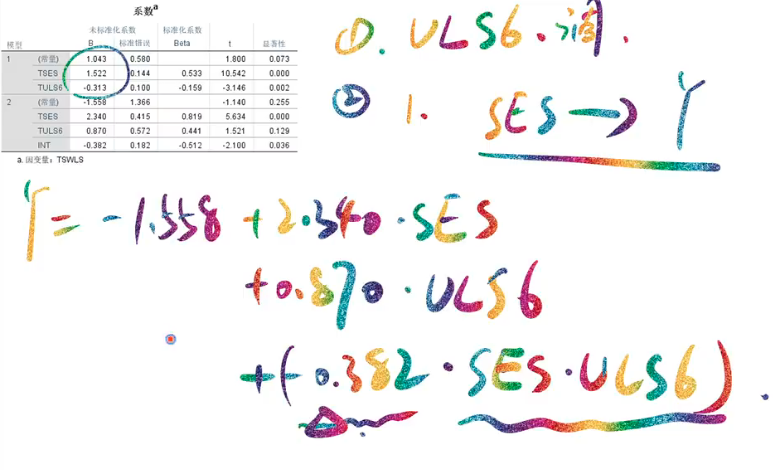 系数ª
未标准化系数 标准化系数
模型 B 标准错误 Beta t 显著性
1 (常量) 1.043 0.580 1.800 0.073
TSES 1.522 0.144 0.533 10.542 0.000
TULS6 -0.313 0.100 -0.159 -3.146 0.002
2 (常量) -1.558 1.366 -1.140 0.255
TSES 2.340 0.415 0.819 5.634 0.000
TULS6 0.870 0.572 0.441 1.521 0.129
INT -0.382 0.182 -0.512 -2.100 0.036
a. 因变量：TSWLS
①. ULS6.调.
② 1. SES → Y
Y = -1.558 + 2.340 · SES
+0.870 · ULS6
+(-0.382 · SES · ULS6)